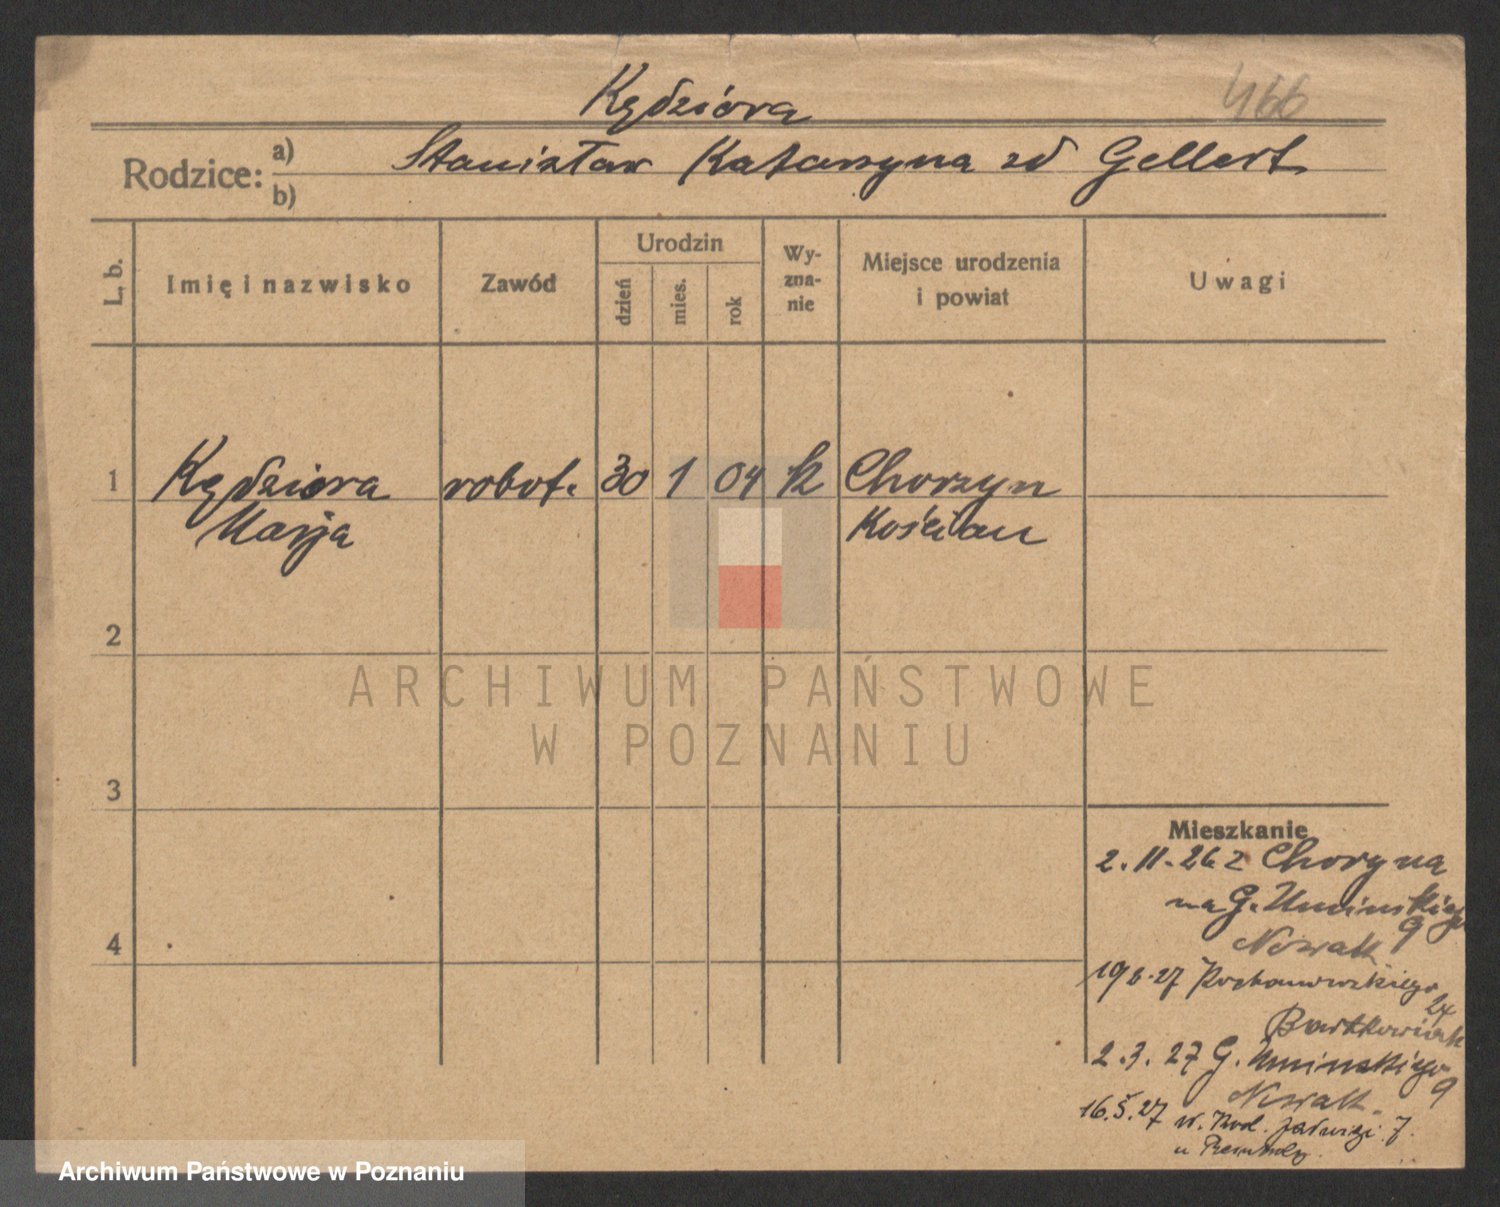 Kędziora
466
Rodzice: a) b)
Stanisław Katarzyna zd Gellert
L. b.
Imię i nazwisko
Zawód
Urodzin
dzień
mies.
rok
Wy-
zna-
nie
Miejsce urodzenia
i powiat
Uwagi
1 Kędziora robot. 30 1 04 k Chorzyn
Marja Kościan
2
3
4
ARCHIWUM PAŃSTWOWE
W POZNANIU
Mieszkanie
2.11.26 z Choryna
na G. Umińskiego
9
Nowak
27 Kochanowskiego
24
Bartkowiak
2.3.27 G. Umińskiego
9
Nowak.
16.5.27 Jadwigi 7.
u
Archiwum Państwowe w Poznaniu